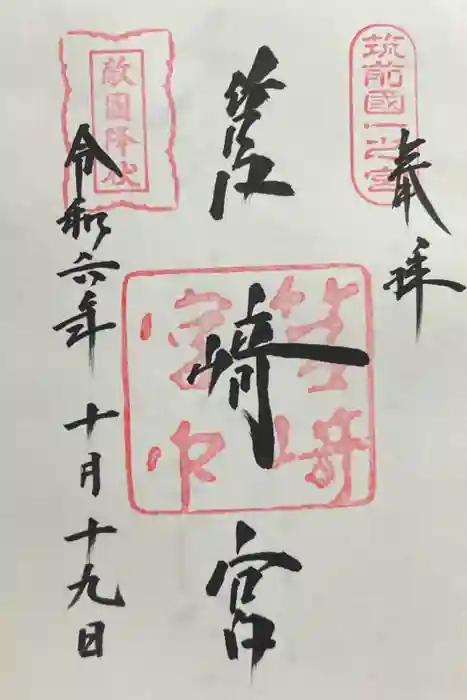 筑前國一之宮
奉拝
筥崎宮
筥崎
宮印
敵国降伏
令和六年十月十九日